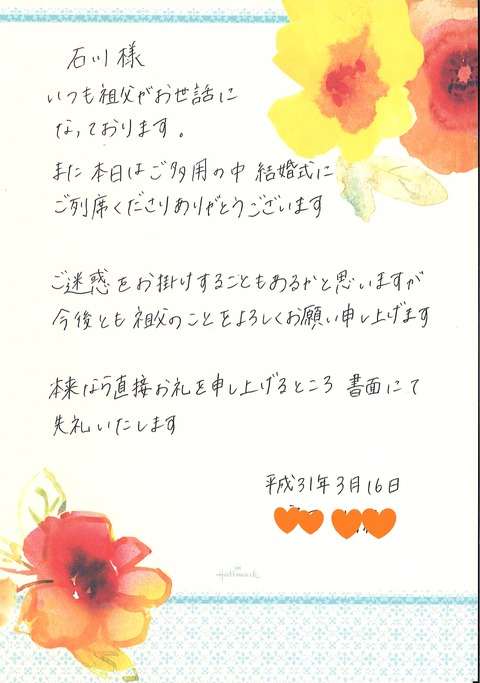 石川様
いつも祖父がお世話に
なっております。
また本日はご多用の中 結婚式に
ご列席くださりありがとうございます
ご迷惑をお掛けすることもあるかと思いますが
今後とも祖父のことをよろしくお願い申し上げます
本来なら直接お礼を申し上げるところ 書面にて
失礼いたします
平成31年3月16日
Hallmark